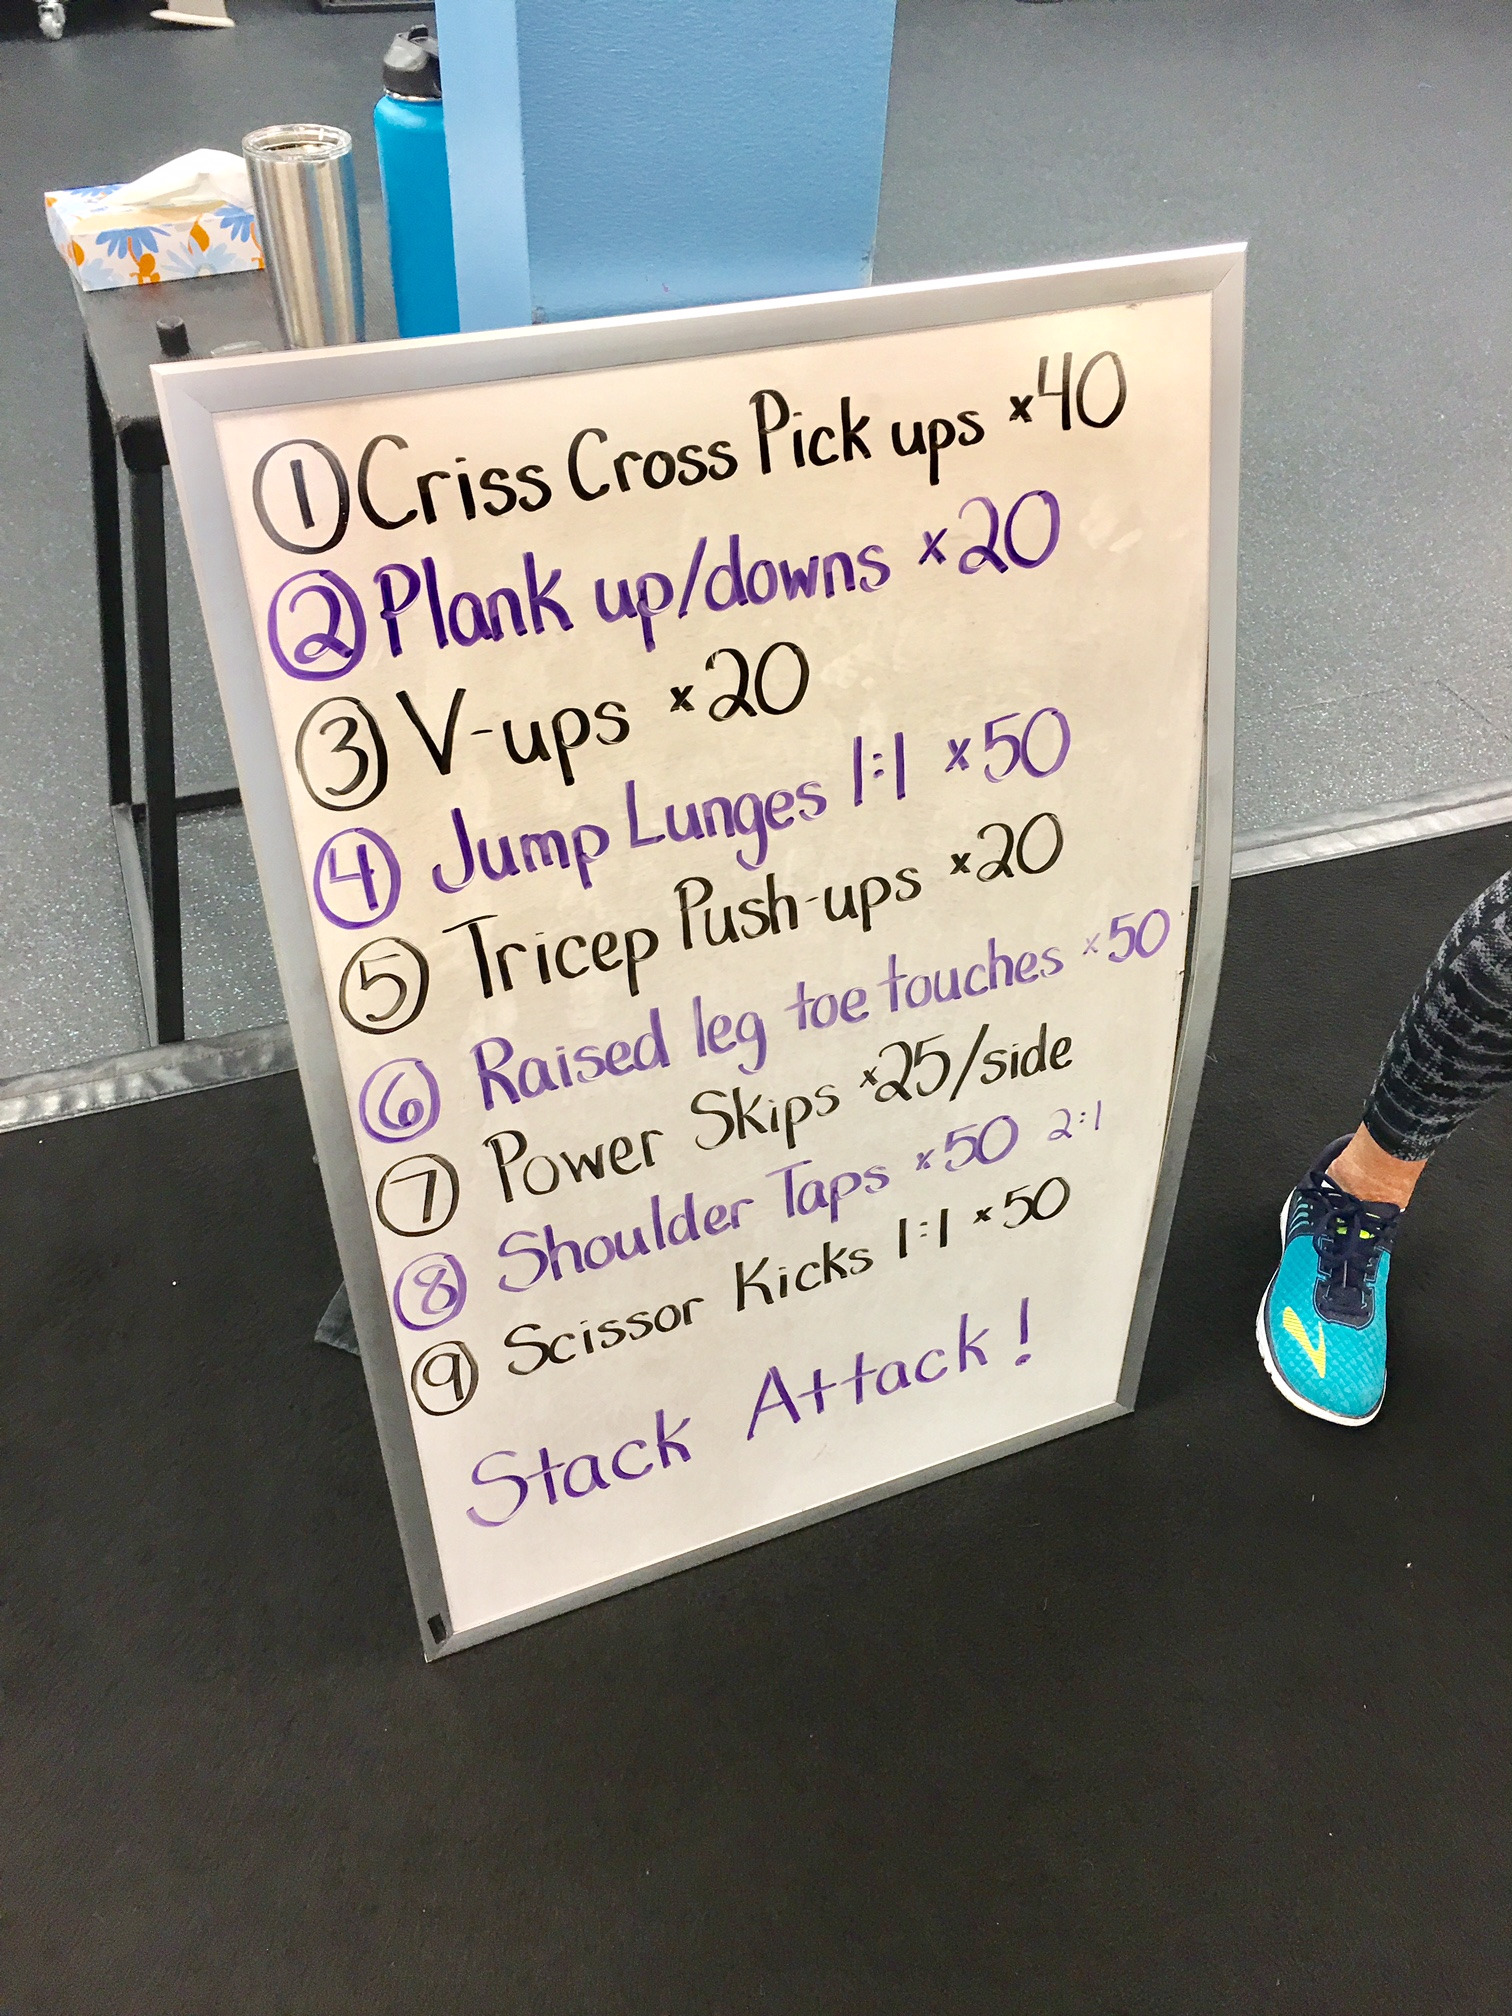 ① Criss Cross Pick ups x40
② Plank up/downs x20
③ V-ups x20
④ Jump Lunges 1:1 x50
⑤ Tricep Push-ups x20
⑥ Raised leg toe touches x50
⑦ Power Skips x25/side
⑧ Shoulder Taps x50 2:1
⑨ Scissor Kicks 1:1 x50
Stack Attack!